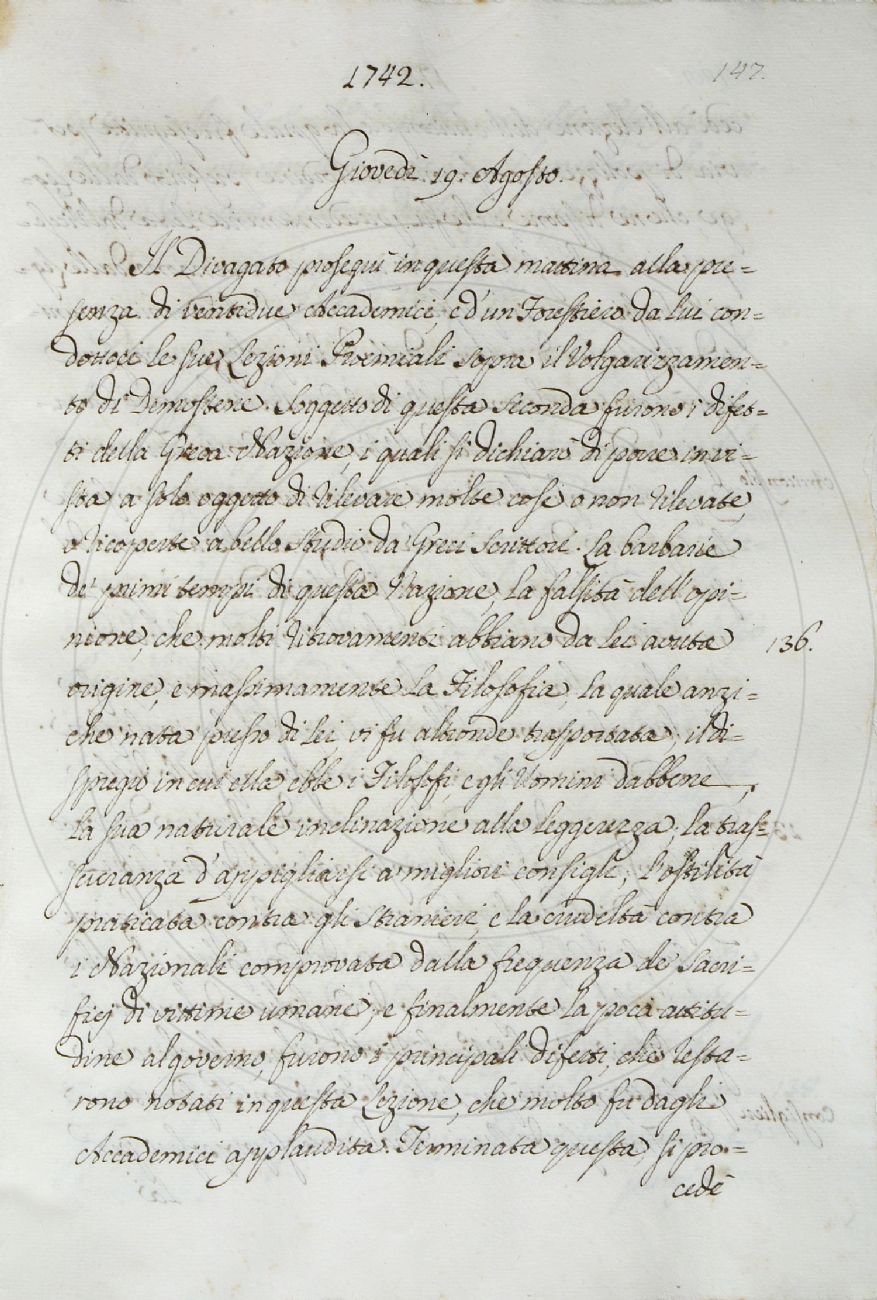 1742.
147.
Giovedì 19. Agosto.
Il Divagato proseguì in questa mattina alla pre=
senza di ventidue Accademici, e d'un Forestiero da lui con=
dottoci le sue Lezioni Proemiali sopra il Volgarizzamen=
to di Demostene. Soggetto di questa seconda furono i difet=
ti della Greca Nazione, i quali si dichiarò di porre in vi=
sta a solo oggetto di rilevare molte cose o non rilevate,
o ricoperte a bello studio da Greci Scrittori. La barbarie
de' primi tempi di questa Nazione, la falsità dell'opi=
nione, che molti ritrovamenti abbiano da lei avuta
136.
origine, e massimamente la Filosofia, la quale anzi=
che nata presso di lei, vi fu altronde trasportata; il di=
spregio in cui ella ebbe i Filosofi, e gli Uomini dabbene,
la sua naturale inclinazione alla leggerezza; la tras=
curanza d'appigliarsi a migliori consigli; l'ostilità
praticata contra gli stranieri, e la crudeltà contra
i Nazionali comprovata dalla frequenza de' sacri=
ficj di vittime umane, e finalmente la poca attitu=
dine al governo, furono i principali difetti, che resta=
rono notati in questa Lezione, che molto fu dagli
Accademici applaudita. Terminata questa, si pro=
cedè